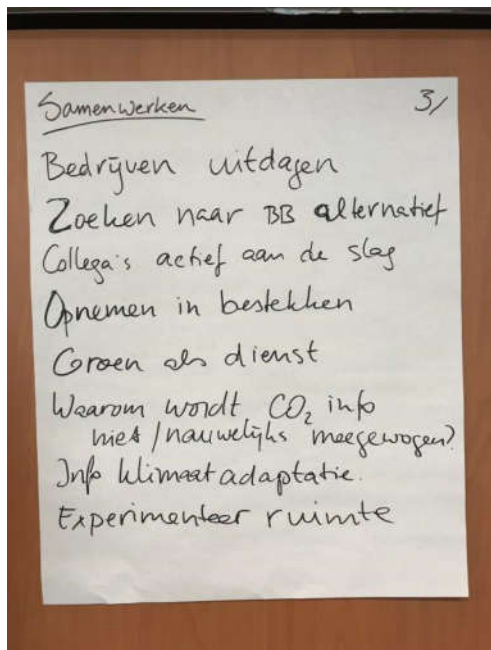 Samenwerken 3/
Bedrijven uitdagen
Zoeken naar BB alternatief
Collega's actief aan de slag
Opnemen in bestekken
Groen als dienst
Waarom wordt CO₂ info
niet/nauwelijks meegewogen?
Info klimaatadaptatie.
Experimenteer ruimte